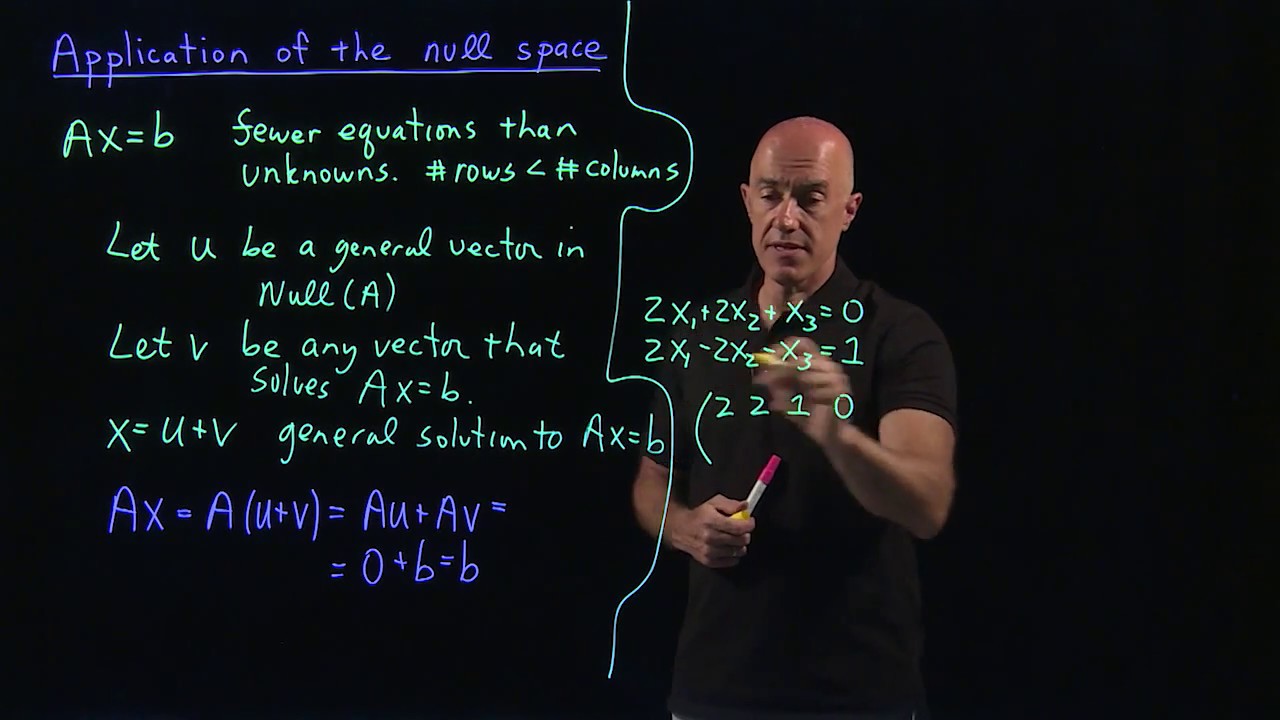 Application of the null space
Ax=b fewer equations than
unknowns. # rows < # columns
Let u be a general vector in
Null(A)
Let v be any vector that
solves Ax=b.
x=u+v general solution to Ax=b
Ax = A(u+v) = Au+Av =
= 0+b=b
2x₁+2x₂+x₃=0
2x₁-2x₂-x₃=1
(2 2 1 0